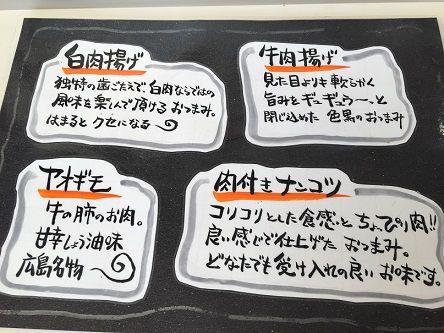 白肉揚げ
独特の歯ごたえで、白肉ならではの
風味を楽んで頂ける おつまみ。
はまると クセになる～
牛肉揚げ
見た目よりも軟らかく
旨みをギュギュウ～っと
閉じ込めた 色黒のおつまみ
ヤオギモ
牛の肺のお肉。
甘辛しょう油味
広島名物
肉付きナンコツ
コリコリとした食感と ちょっぴり肉!!
良い感じで仕上げた おつまみ。
どなたでも受け入れの良い お味です。